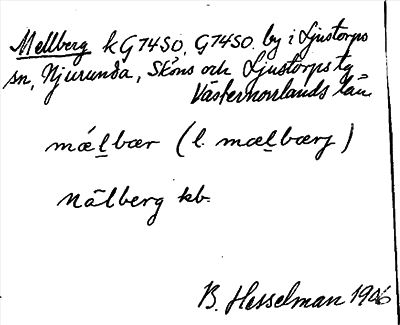 Mellberg k G74SO, G74SO. by i Ljustorps
sn, Njurunda, Sköns och Ljustorps tg
Västernorrlands län.
mǽlbær (l. mælbærj)
Nälberg kb.
B. Hesselman 1906